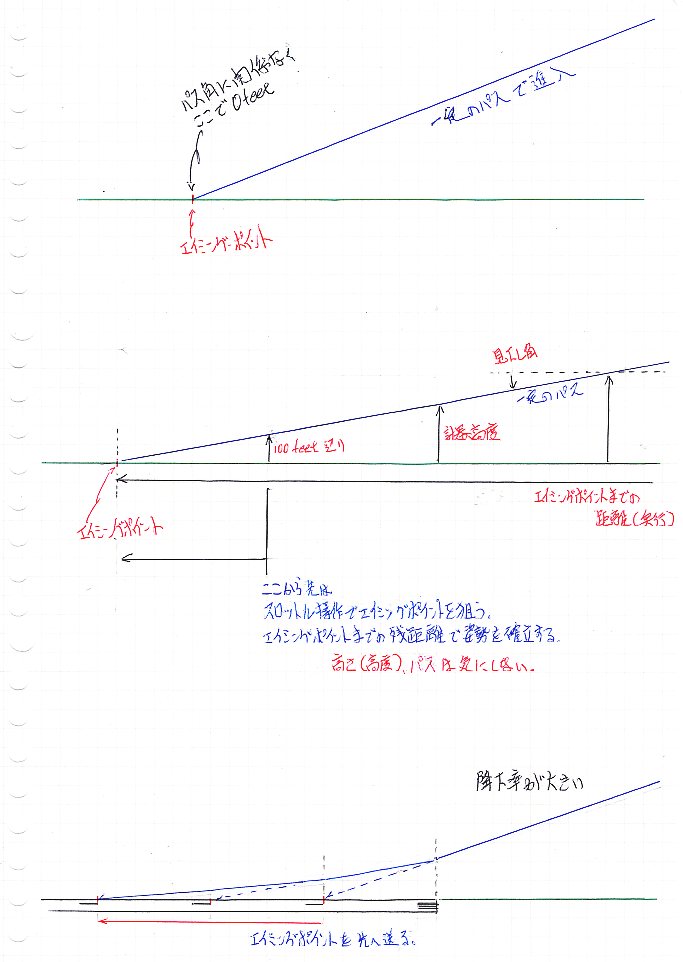 パス角に関係なく
ここで0feet
一定のパスで進入
エイミングポイント
見下し角
一定のパス
100feet辺り
計器高度
エイミングポイントまでの
距離(実行)
エイミングポイント
ここから先は
スロットル操作でエイミングポイントを狙う。
エイミングポイントまでの残距離で姿勢を確立する。
高さ(高度)、パスは気にしない。
降下率が大きい
エイミングポイントを先へ送る。